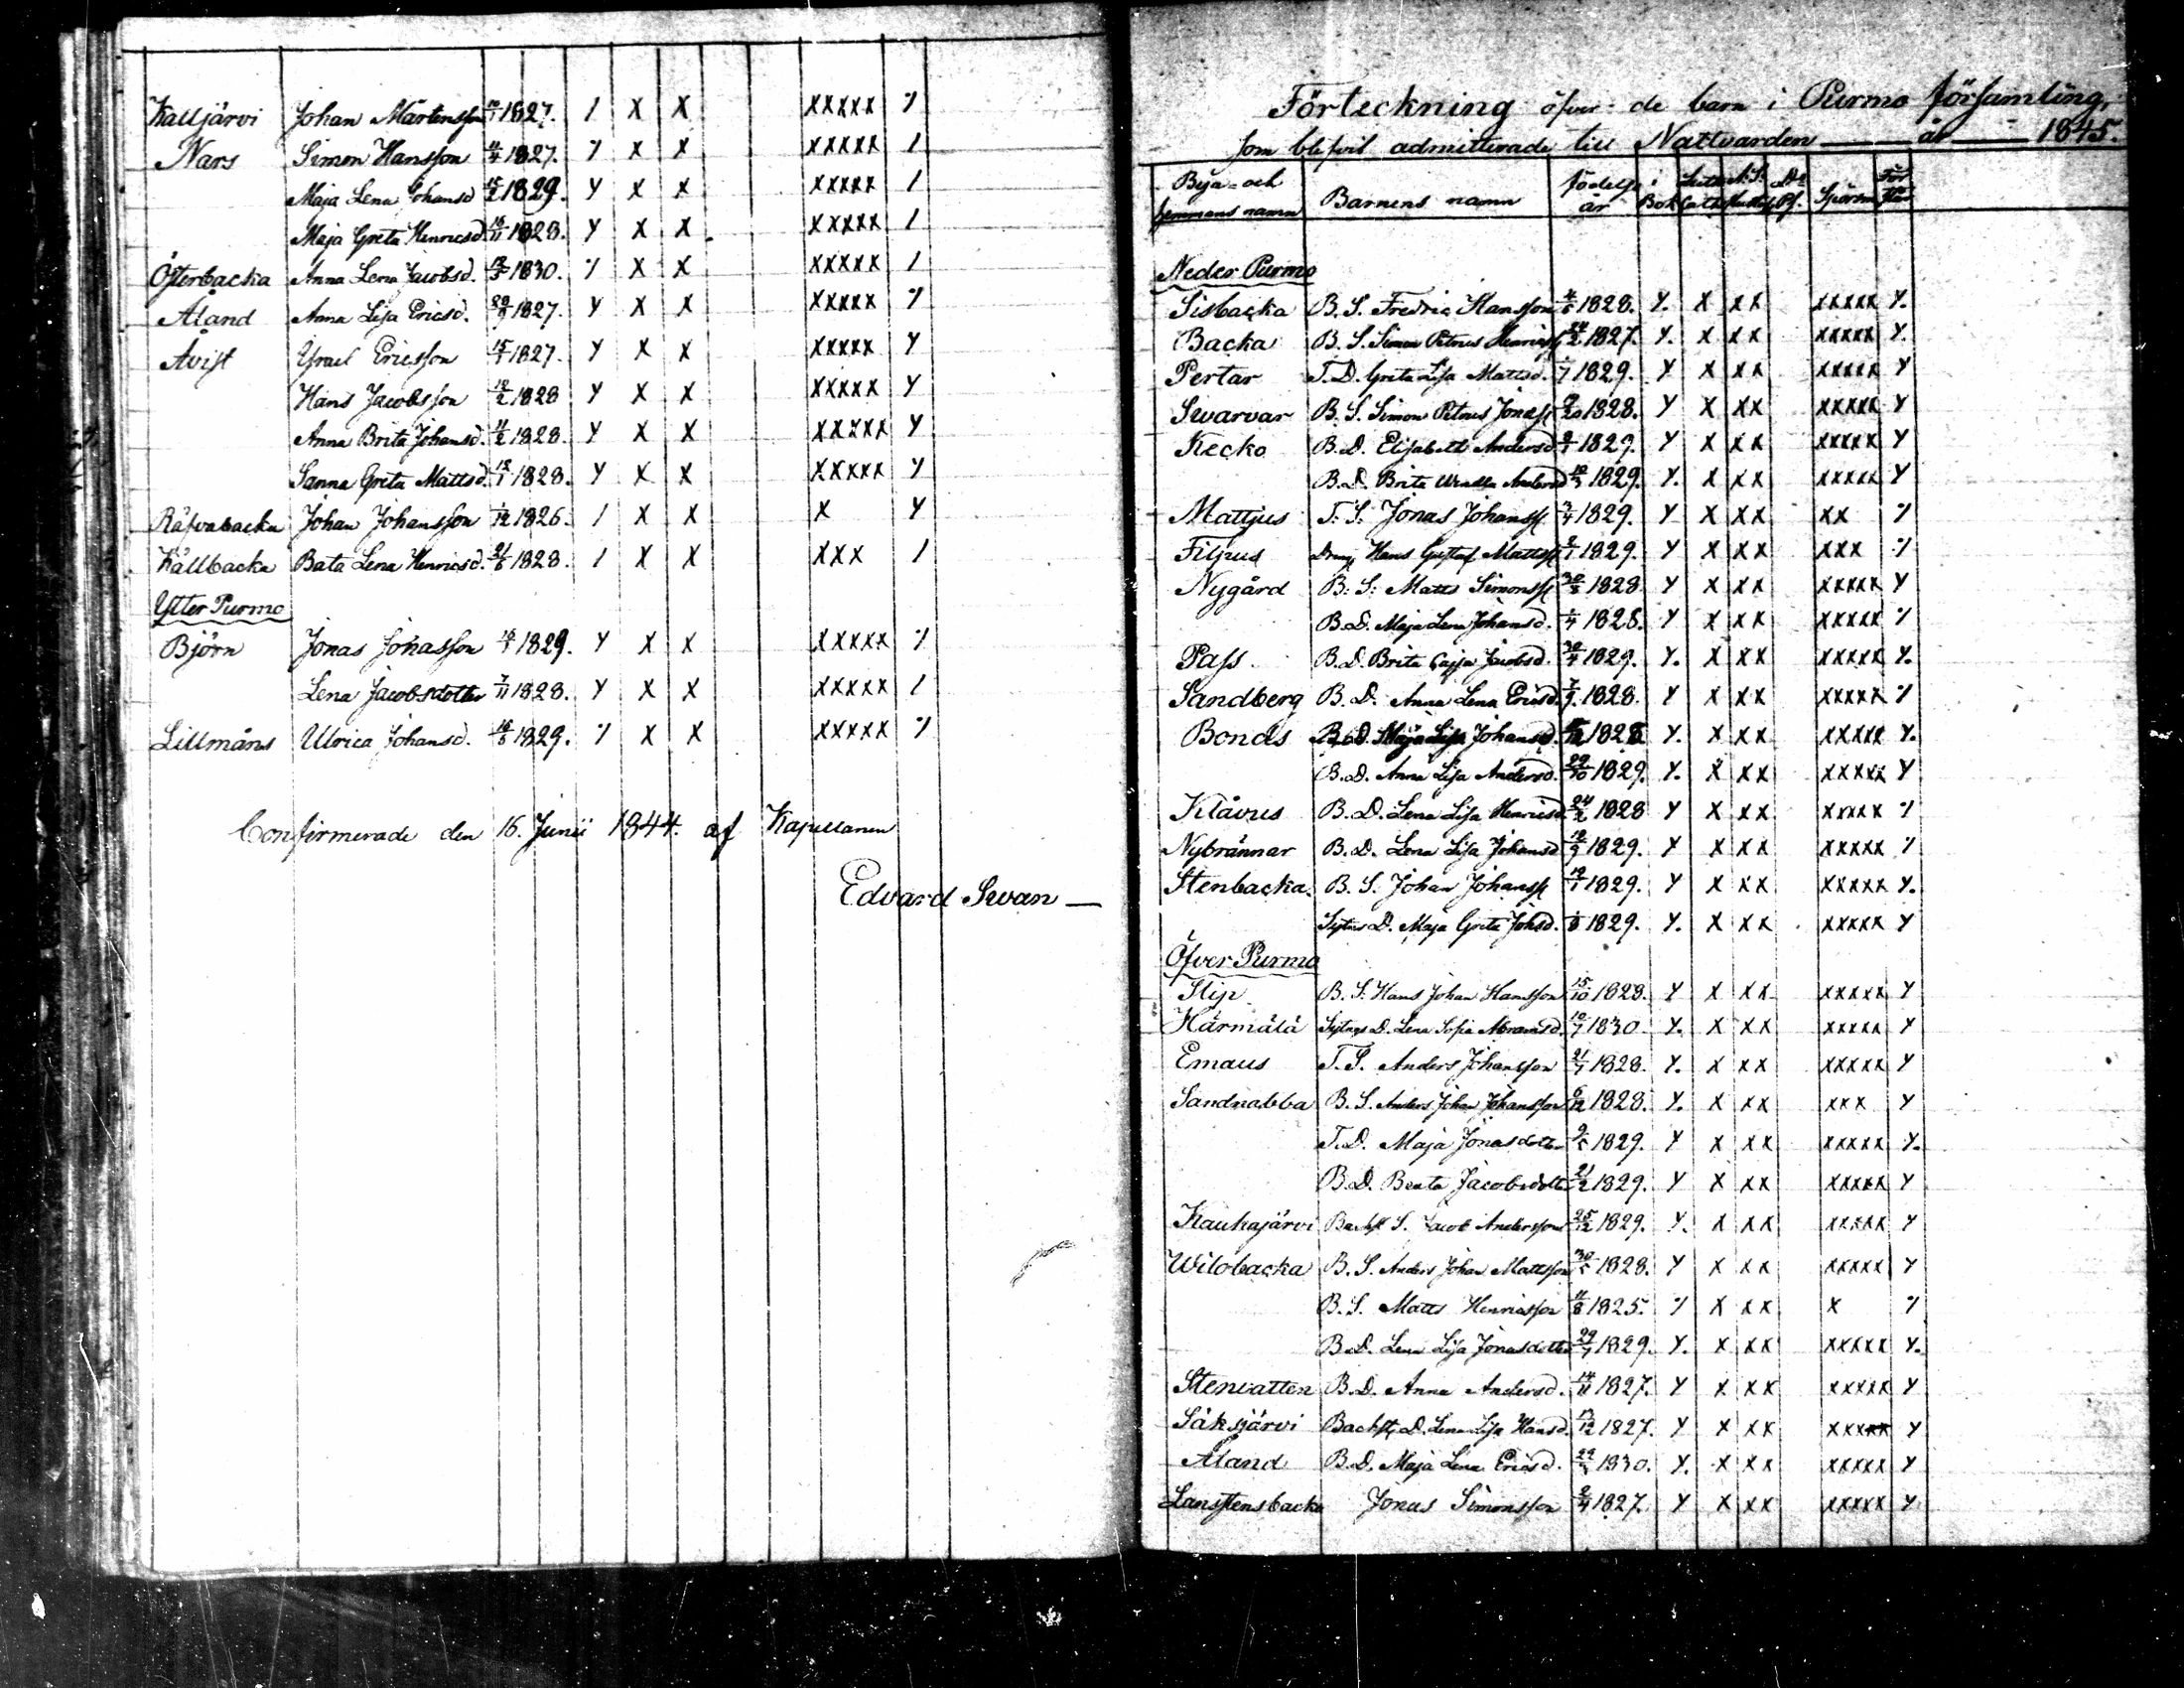 Kalljärvi Johan Mårtensson 1827. / X X XXXXX ⁒
Nars Simon Hansson 11/4 1827. ⁒ X X XXXXX /
Maja Lena Johansd 1829. Y X X XXXXX /
Maja Greta Henricsd. 1828. Y X X XXXXX /
Österbacka Anna Lena Jacobsd. 1830. ⁒ X X XXXXX /
Åland Anna Lisa Ericsd. 29/9 1827. Y X X XXXXX ⁒
Åvist Ysrael Ericsson 1827. Y X X XXXXX Y
Hans Jacobsson 12/2 1828 Y X X XXXXX Y
Anna Brita Johansd. 11/2 1828. Y X X XXXXX Y
Sanna Greta Mattsd. 1828. Y X X XXXXX Y
Räfvabacka Johan Johansson 1/12 1826. / X X X Y
Källbacka Bata Lena Henricsd. 21/6 1828. / X X XXX /
Ytter Purmo
Björn Jonas Johansson 1829. Y X X XXXXX ⁒
Lena Jacobsdotter 7/11 1828. Y X X XXXXX /
Lillmåns Ulrica Johansd. 1829. ⁒ X X XXXXX ⁒
Confirmerade den 16. Junii 1844. af Kapellanen
Edvard Svan —
Förteckning öfver de barn i Purmo församling,
som blifvit admitterade till Nattvarden — år — 1845.
Bya- och hemmans namn Barnens namn födelse år i Bok
Neder Purmo
Sisbacka B. S. Fredric Hansson 1828. Y. X XX XXXXX Y.
Backa B. S. Simon Petrus Henricss 24/2 1827. Y. X XX XXXXX Y.
Pertar T. D. Greta Lisa Mattsd. 1829. Y X XX XXXXX Y
Svarvar B. S. Simon Petrus Jonass 1828. Y X XX XXXXX Y
Kecko B. D. Elisabeth Andersd 1829. Y X XX XXXXX Y
B. D. Brita Andersd 1829. Y. X XX XXXXX Y
Mattjus T. S. Jonas Johanss 1829. Y X XX XX ⁒
Filpus Dreng Hans Gustaf Mattss 1829. Y X XX XXX ⁒
Nygård B. S. Matts Simonss 1828 Y X XX XXXXX Y
B. D. Maja Lena Johansd. 1828. Y X XX XXXXX ⁒
Pass B. D. Brita Cajsa Jacobsd. 1829. Y. X XX XXXXX Y.
Sandberg B. D. Anna Lena Ericsd. 7/9 1828. Y X XX XXXXX ⁒
Bonds B. D. Maja Lisa Johansd. 1828 Y. X XX XXXXX Y.
B. D. Anna Lisa Andersd. 29/10 1829. Y. X XX XXXXX Y
Klåvus B. D. Lena Lisa Henricsd. 24/2 1828 Y X XX XXXXX ⁒
Nybrännar B. D. Lena Lisa Johansd 1829. Y X XX XXXXX ⁒
Stenbacka. B. S. Johan Johanss 1829. Y X XX XXXXX Y.
Sytnings D. Maja Greta Johsd. 1829. Y. X XX XXXXX Y
Öfver Purmo
Slip B. S. Hans Johan Hansson 15/10 1828. Y X XX XXXXX Y
Härmälä Sytnings D. Lena Sofia Abramsd. 1830. Y. X XX XXXXX Y
Emaus T. S. Anders Johansson 1828. Y. X XX XXXXX Y
Sandnabba B. S. Anders Johan Johansson 6/12 1828. Y. X XX XXX Y
T. D. Maja Jonasdotter 1829. Y X XX XXXXX Y.
B. D. Beata Jacobsdotter 21/2 1829. Y X XX XXXXX Y
Kauhajärvi Backst S. Jacob Andersson 25/12 1829. Y. X XX XXXXX Y
Wilobacka B. S. Anders Johan Mattsson 1828. Y X XX XXXXX Y
B. S. Matts Henricsson 11/8 1825. ⁒ X XX X ⁒
B. D. Lena Lisa Jonasdotter 1829. Y. X XX XXXXX Y.
Stenvatten B. D. Anna Andersd. 14/11 1827. Y X XX XXXXX Y
Säksjärvi Backst. D. Lena Lisa Hansd. 1827. Y X XX XXXXX Y
Åland B. D. Maja Lena Ericsd. 1830. Y. X XX XXXXX Y
Lanstensbacka Jonas Simonsson 2/4 1827. Y X XX XXXXX Y